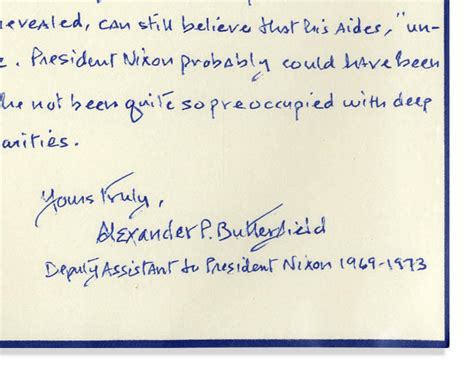 revealed, can still believe that his aides, "un-
. President Nixon probably could have been
he not been quite so preoccupied with deep
Yours truly,
Alexander P. Butterfield
Deputy Assistant to President Nixon 1969-1973